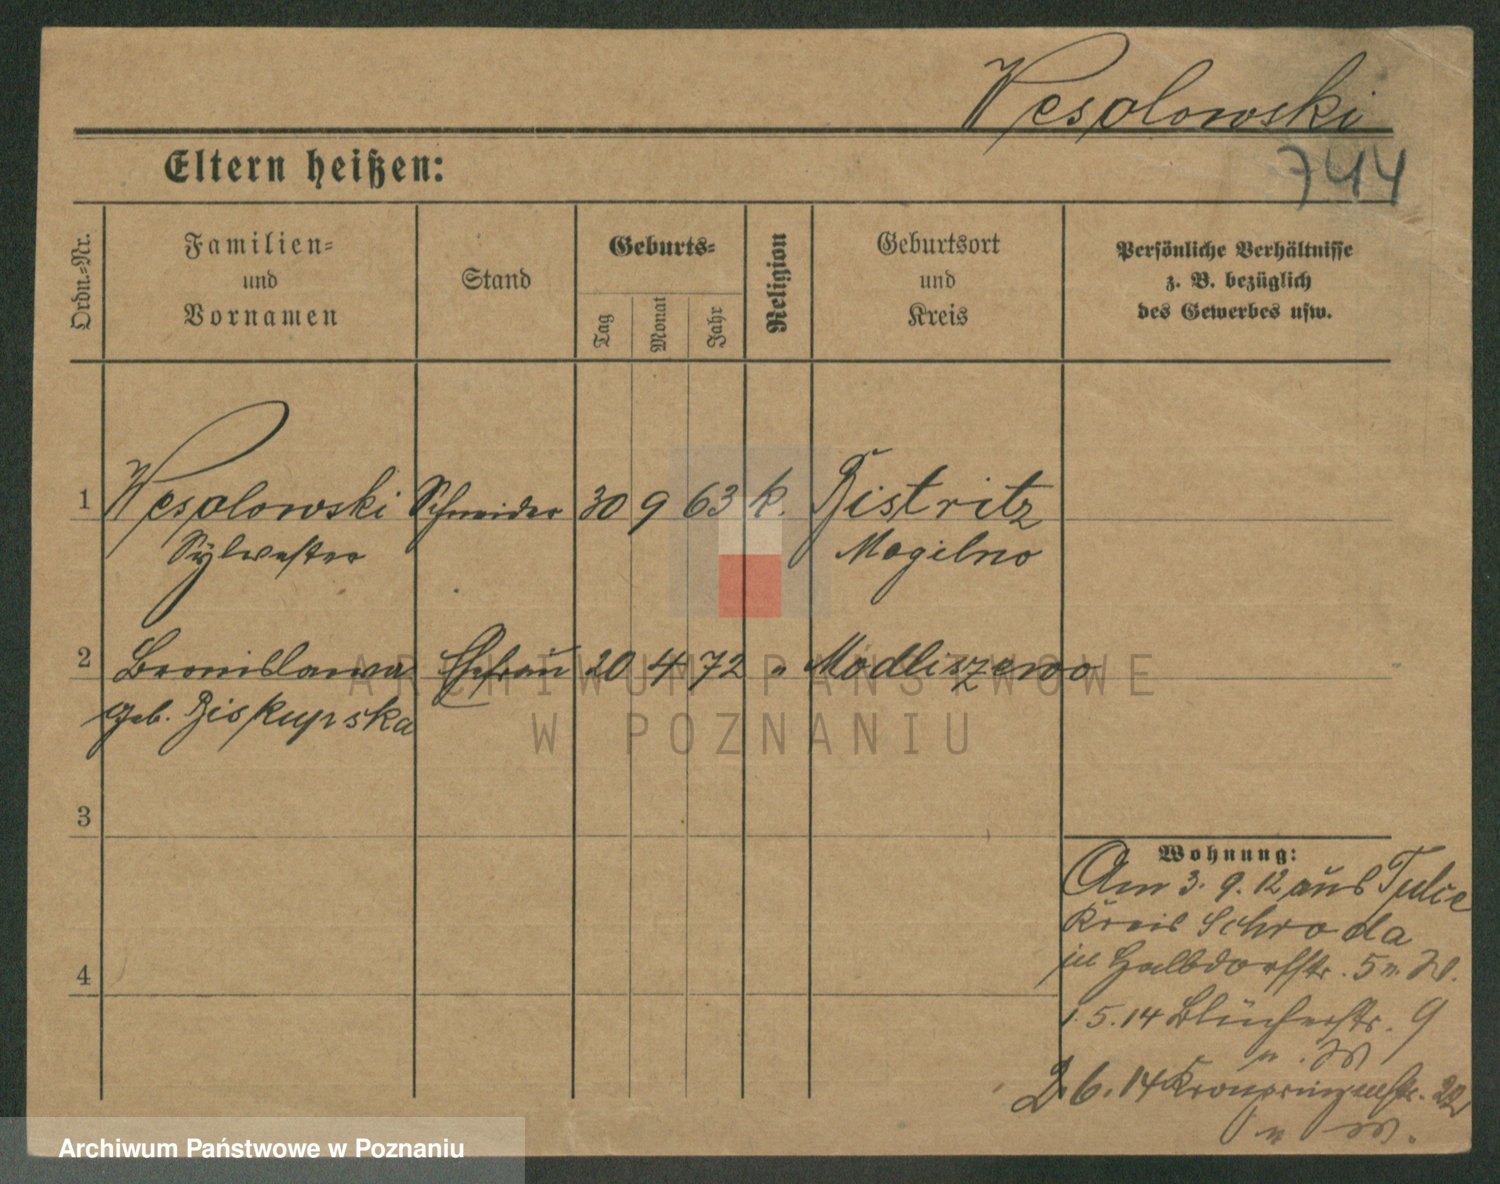 Wesolowski
Eltern heißen:
744
Ordn.=Nr.
Familien=
und
Vornamen
Stand
Geburts=
Tag
Monat
Jahr
Religion
Geburtsort
und
Kreis
Persönliche Verhältnisse
z. B. bezüglich
des Gewerbes usw.
1 Wesolowski Schneider 30 9 63 k. Bistritz
Sylwester Mogilno
2 Bronislawa Ehefrau 20 4 72 " Modliszewo
geb. Biskupska
3
4
Wohnung:
Am 3. 9. 12 aus Tulce
Kreis Schroda
in Halbdorfstr. 5 n. W.
1. 5. 14 Blücherstr. 9
n. W
2. 6. 14 Kronprinzenstr.
n W.
ARCHIWUM PAŃSTWOWE
W POZNANIU
Archiwum Państwowe w Poznaniu